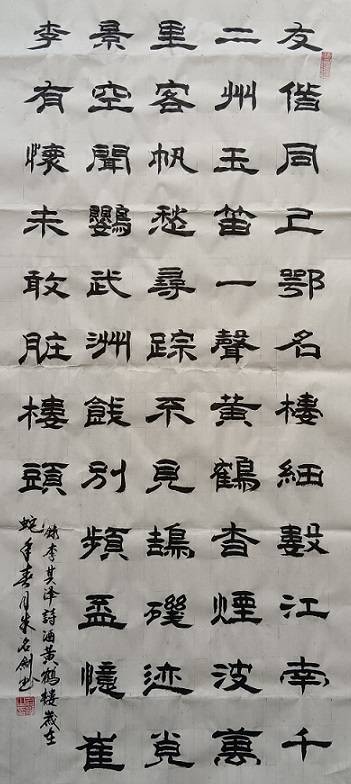 友偕同己鄂名樓細數江南千
二州玉笛一聲黃鶴杳煙波萬
里客帆愁尋踪不見鵠磯迹覓
景空聞鸚武洲餞別頻盃憶崔
李有懷未敢脏樓頭
錄李其泽詩酒黃鶴楼歲在
蛇年春月朱名剑书